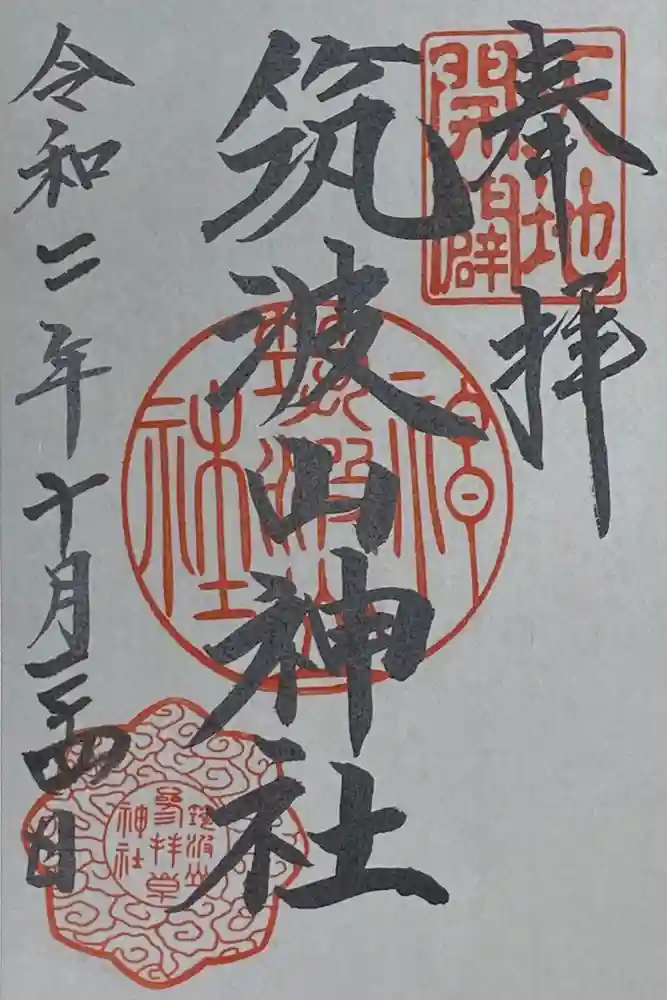 奉拝
天地
開闢
筑波山神社
筑波山
神社
筑波山
参拝章
神社
令和二年十月二十四日